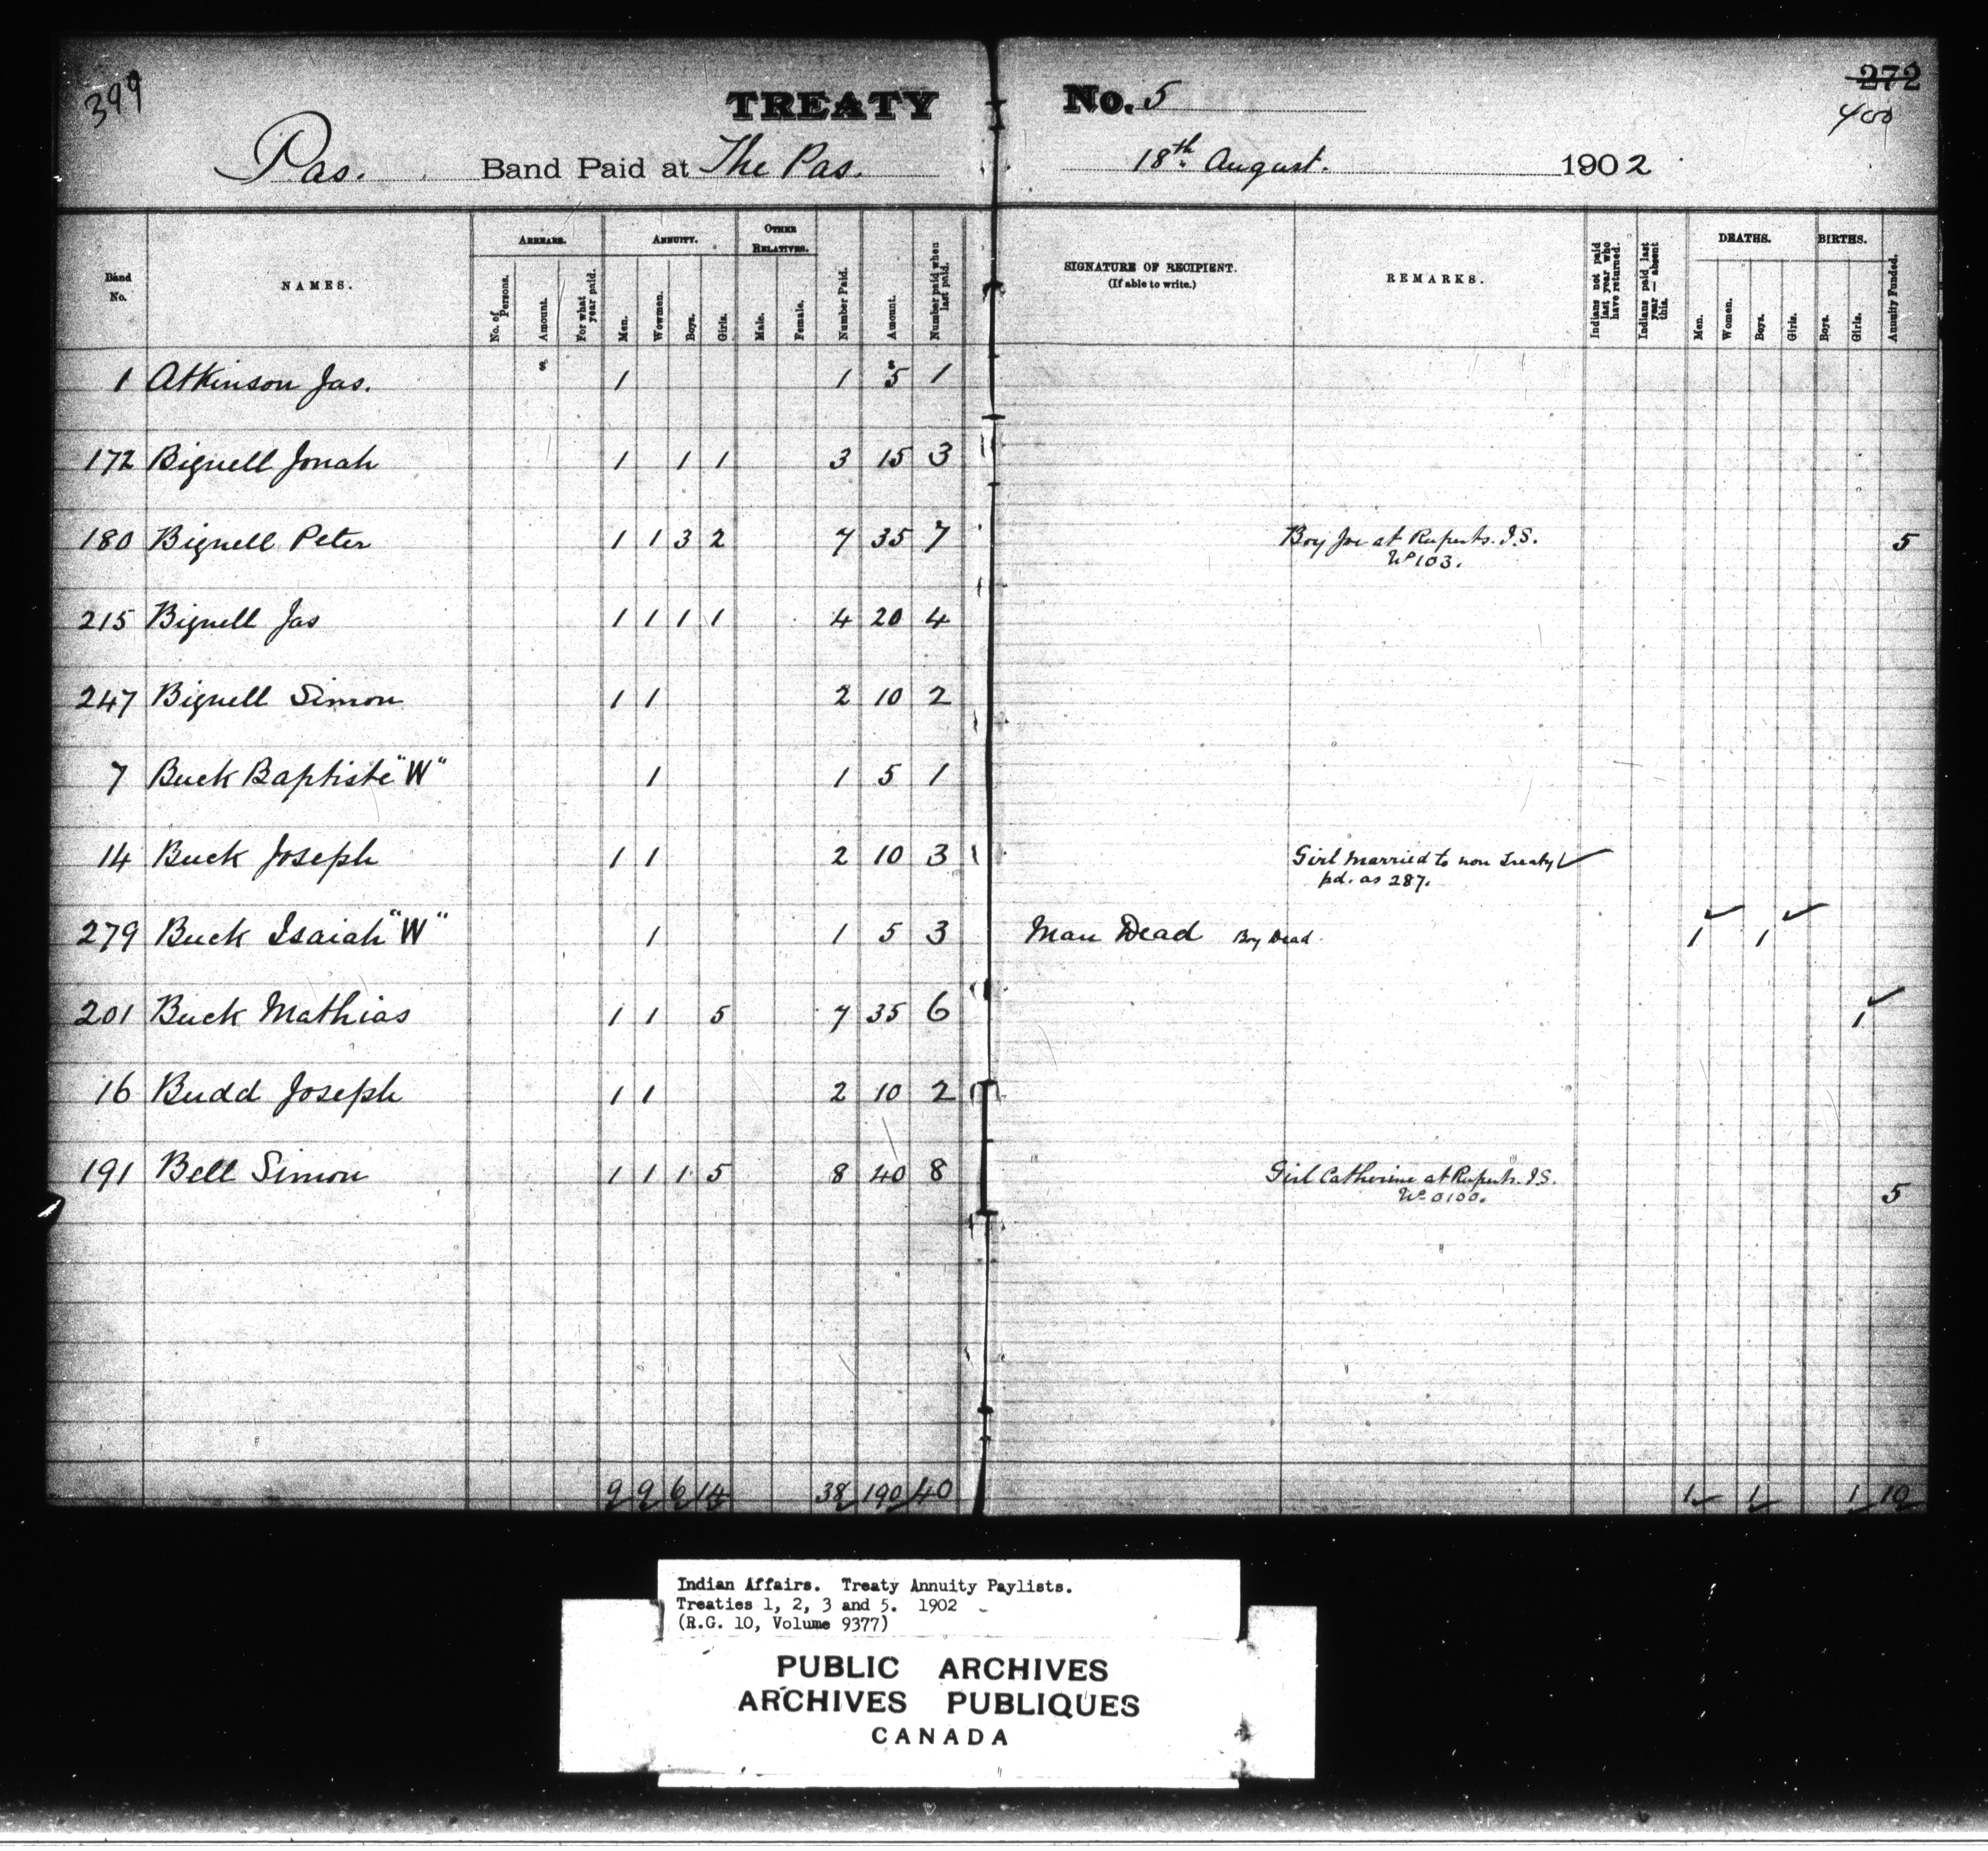 399
TREATY No. 5
272
400
Pas. Band Paid at The Pas. 18th August. 1902
Band No.
NAMES.
ARREARS.
No. of Persons.
Amount.
For what year paid.
ANNUITY.
Men.
Wowmen.
Boys.
Girls.
OTHER RELATIVES.
Male.
Female.
Number Paid.
Amount.
Number paid when last paid.
SIGNATURE OF RECIPIENT.
(If able to write.)
REMARKS.
Indians not paid last year who have returned.
Indians paid last year — absent this.
DEATHS.
Men.
Women.
Boys.
Girls.
BIRTHS.
Boys.
Girls.
Annuity Funded.
1 Atkinson Jas. 1 1 5 1
172 Bignell Jonah 1 1 1 3 15 3
180 Bignell Peter 1 1 3 2 7 35 7 Boy Joe at Ruperts. I.S. 5
No 103.
215 Bignell Jas 1 1 1 1 4 20 4
247 Bignell Simon 1 1 2 10 2
7 Buck Baptiste "W" 1 1 5 1
14 Buck Joseph 1 1 2 10 3 Girl married to non Treaty
pd. as 287.
279 Buck Isaiah "W" 1 1 5 3 Man Dead Boy Dead 1 1
201 Buck Mathias 1 1 5 7 35 6 1
16 Budd Joseph 1 1 2 10 2
191 Bell Simon 1 1 1 5 8 40 8 Girl Catherine at Ruperts. I.S.
No 0100. 5
9 9 6 14 38 190 40 1 1 1 10
Indian Affairs. Treaty Annuity Paylists.
Treaties 1, 2, 3 and 5. 1902
(R.G. 10, Volume 9377)
PUBLIC ARCHIVES
ARCHIVES PUBLIQUES
CANADA